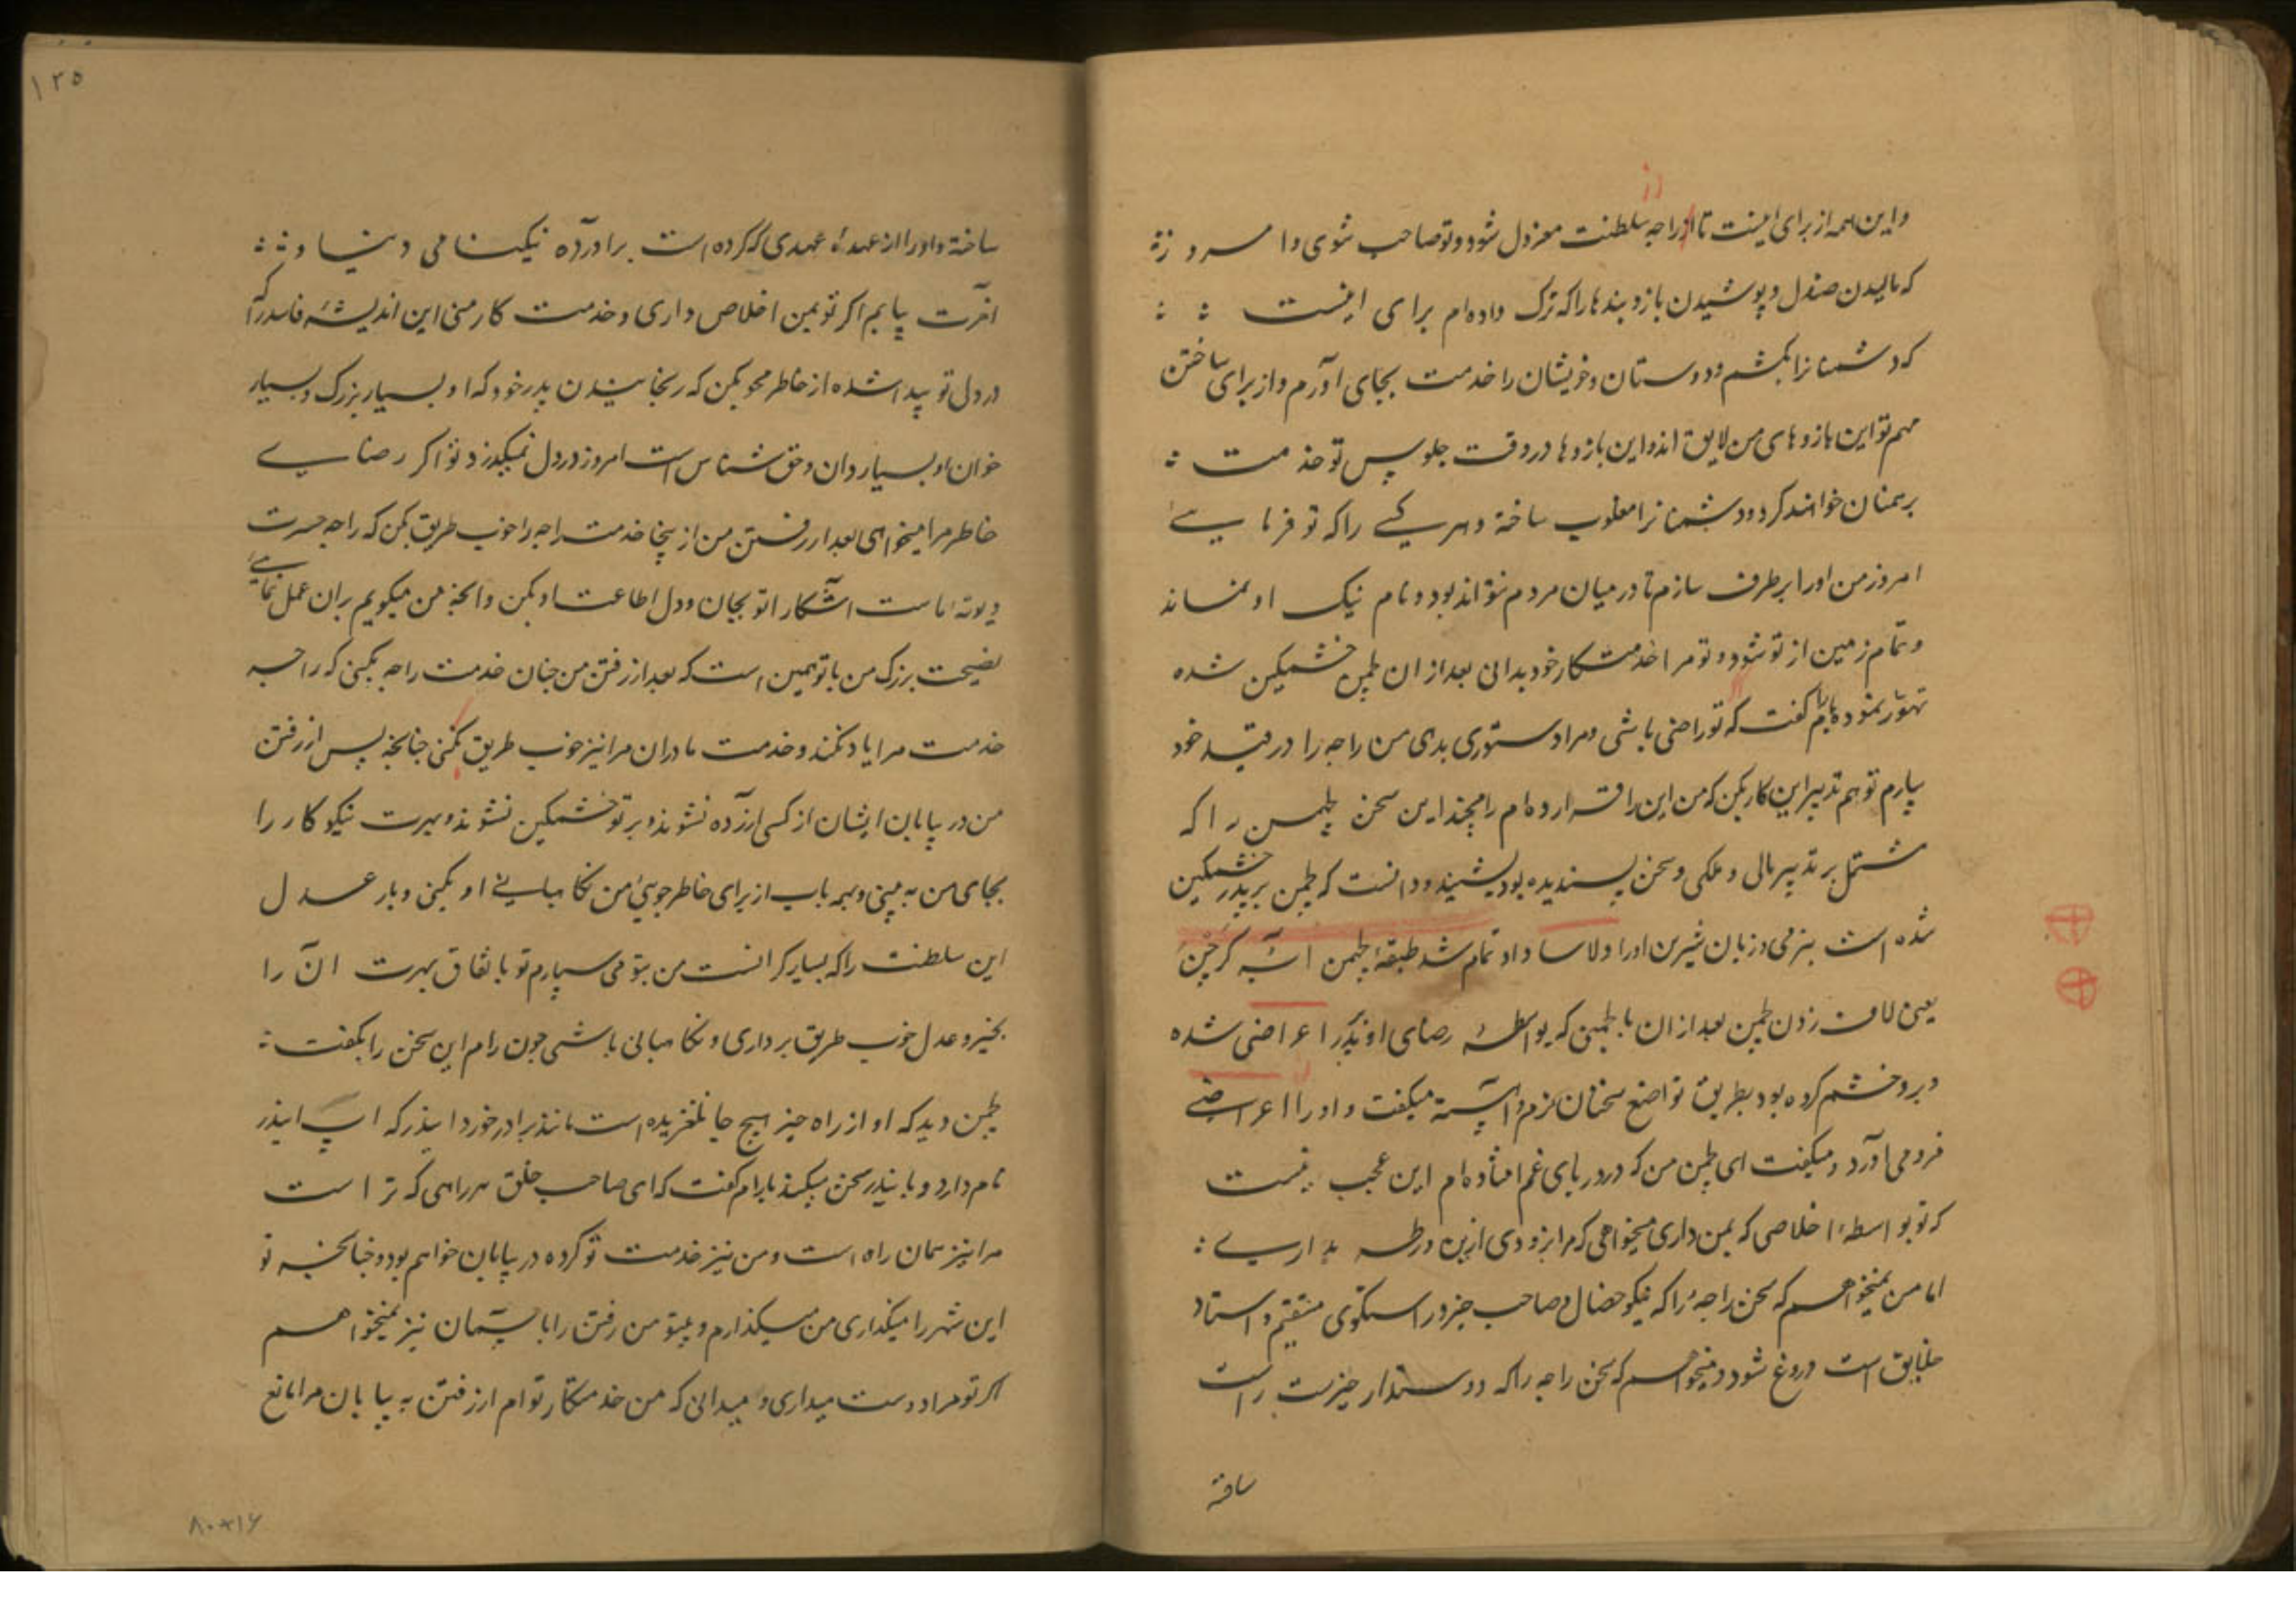 واین همه از برای اینست تا از راجه سلطنت معزول شود و تو صاحب شوی و امروز
که مالیدن صندل و پوشیدن بازوبندها را که ترک داده‌ام برای اینست
که دشمنانرا بکشم و دوستان و خویشان را خدمت بجای آورم و از برای ساختن
مهم تو این بازوهای من لایق اند و این بازوها در وقت جلوس تو خدمت
برهمنان خواهند کرد و دشمنانرا مغلوب ساخته و هر کسی را که تو فرمایی
امروز من او را برطرف سازم تا در میان مردم نتواند بود و نام نیک او نماند
و تمام زمین از تو شود و تو مرا خدمتکار خود بدانی بعد از ان لچمن خشمگین شده
تهور نموده برام گفت که تو راضی باشی و مرا دستوری بدی من راجه را در قید خود
بیارم تو هم تدبیر این کار بکن که من این را قرار داده‌ام رامچند این سخن لچمن را که
مشتمل بر تدبیر مالی و ملکی و سخن پسندیده بود بشنید و دانست که لچمن بر پدر خشمگین
شده است بنرمی و زبان شیرین او را دلاسا داد تمام شد طبقهٔ لچمن
یعنی لاف زدن لچمن بعد از ان با لچمن که بواسطهٔ رضای او بپدر اعراضی شده
و برو خشم کرده بود بطریق تواضع سخنان نرم و آهسته میگفت و او را از اعراضی
فرو می‌آورد و میگفت ای لچمن من که در دریای غم افتاده‌ام این عجب نیست
که تو بواسطهٔ اخلاصی که بمن داری میخواهی که مرا بزودی ازین ورطه بداری
اما من نمیخواهم که سخن راجه را که نیکو خصال و صاحب خیر و راستگوی مستقیم و استاد
خلایق است دروغ شود و میخواهم که سخن راجه را که دوستدار خیرست راست
ساخته
۱۲۵
ساخته و او را از عهدهٔ عهدی که کرده است برادر آورده نیکنامی دنیا و
آخرت یابم اگر تو بمن اخلاص داری و خدمت کار منی این اندیشهٔ فاسد را که
در دل تو پیدا شده از خاطر محو بکن که رنجانیدن پدر خود که او بسیار بزرگ و بسیار
خوان و بسیار دان و حق شناس است امروز در دل نمیگذرد تو اگر رضای
خاطر مرا میخواهی بعد از رفتن من از ینجا خدمت راجه را خوب طریق بکن که راجه جسرت
دیوته ماست آشکارا تو بجان و دل اطاعت او بکن و آنچه من میگویم بران عمل نمایی
نصیحت بزرگ من با تو همین است که بعد از رفتن من چنان خدمت راجه بکنی که راجه
خدمت مرا یاد نکند و خدمت مادران مرا نیز خوب طریق بکنی چنانچه پس از رفتن
من در بیابان ایشان از کسی آزرده نشوند و بر تو خشمگین نشوند و بهرت نیکوکار را
بجای من به بینی و بهمه باب از برای خاطر جویی من نگاهبانی او بکنی و بار عدل
این سلطنت را که بسیار گرانست من بتو می سپارم تو باتفاق بهرت آن را
بخیر و عدل خوب طریق برداری و نگاهبانی باشی چون رام این سخن را بگفت
لچمن دید که او از راه خیر هیچ جا نلغزیده است مانند برادر خورد ایندر که اپ ایندر
نام دارد و با ایندر سخن میکند با رام گفت که ای صاحب خلق هر راهی که تراست
مرا نیز همان راه است و من نیز خدمت تو کرده در بیابان خواهم بود و چنانچه تو
این شهر را میگذاری من میگذارم و بیتو من رفتن را با آسمان نیز نمیخواهم
اگر تو مرا دوست میداری و میدانی که من خدمتکار توام از رفتن به بیابان مرا مانع
۸۰×۱۶